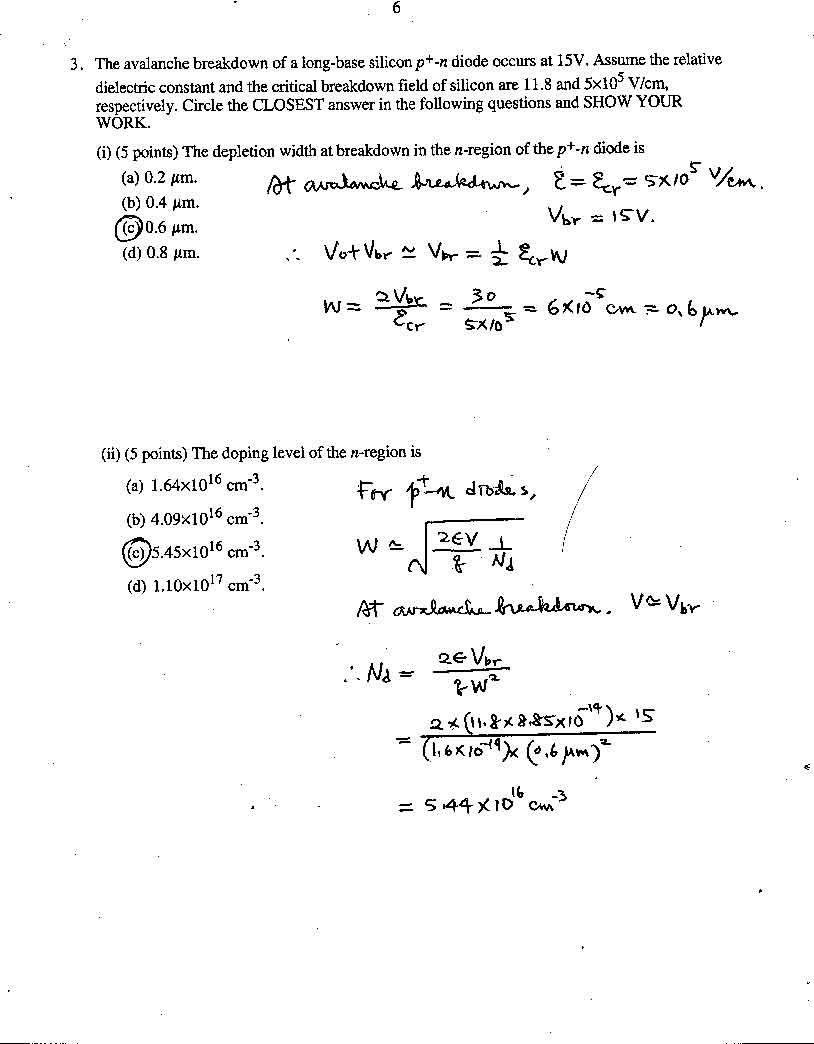 6
3. The avalanche breakdown of a long-base silicon p⁺-n diode occurs at 15V. Assume the relative
dielectric constant and the critical breakdown field of silicon are 11.8 and 5×10⁵ V/cm,
respectively. Circle the CLOSEST answer in the following questions and SHOW YOUR
WORK.
(i) (5 points) The depletion width at breakdown in the n-region of the p⁺-n diode is
(a) 0.2 μm.
(b) 0.4 μm.
(c) 0.6 μm.
(d) 0.8 μm.
At avalanche breakdown, ℰ = ℰcr = 5×10⁵ V/cm.
Vbr = 15V.
∴ Vo+Vbr ≃ Vbr = 1/2 ℰcr W
W = 2Vbr/ℰcr = 30/5×10⁵ = 6×10⁻⁵ cm = 0.6 μm
(ii) (5 points) The doping level of the n-region is
(a) 1.64×10¹⁶ cm⁻³.
(b) 4.09×10¹⁶ cm⁻³.
(c) 5.45×10¹⁶ cm⁻³.
(d) 1.10×10¹⁷ cm⁻³.
For p⁺-n diodes,
W ≃ √(2ϵV/q · 1/Nd)
At avalanche breakdown, V≃Vbr
∴ Nd = 2ϵVbr/qW²
= 2×(11.8×8.85×10⁻¹⁴)×15/(1.6×10⁻¹⁹)×(0.6 μm)²
= 5.44×10¹⁶ cm⁻³